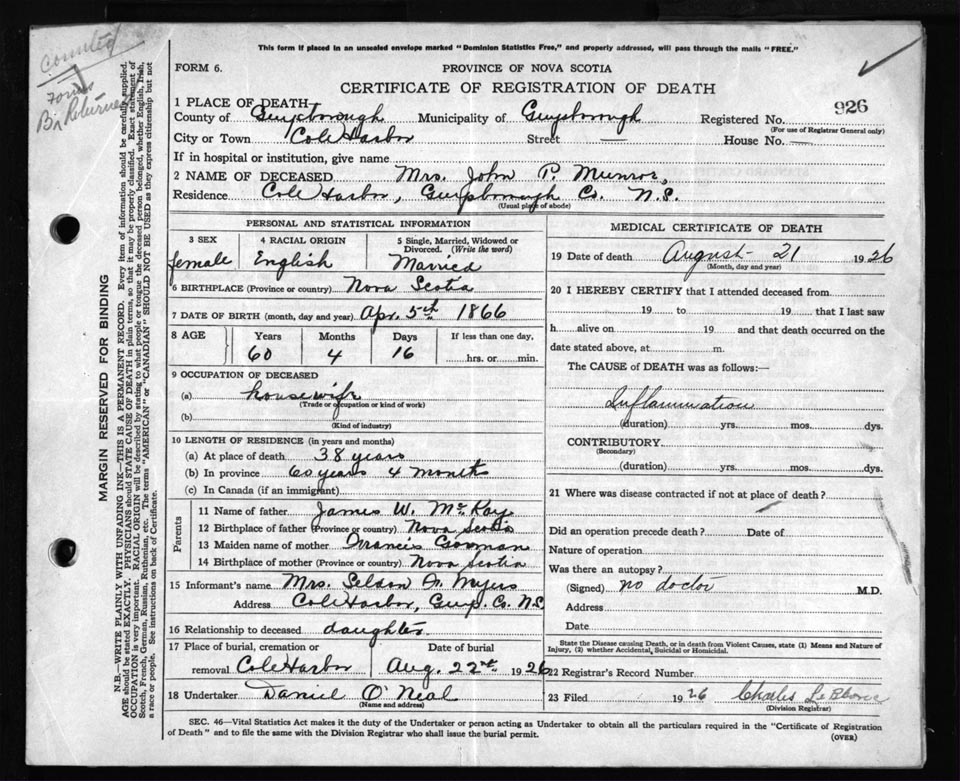 counted
Form
Returned
This form if placed in an unsealed envelope marked "Dominion Statistics Free," and properly addressed, will pass through the mails "FREE."
FORM 6.
PROVINCE OF NOVA SCOTIA
CERTIFICATE OF REGISTRATION OF DEATH
926
1 PLACE OF DEATH
County of Guysborough Municipality of Guysborough Registered No.
(For use of Registrar General only)
City or Town Cole Harbor Street — House No. —
If in hospital or institution, give name
2 NAME OF DECEASED Mrs. John P. Munroe,
Residence Cole Harbor, Guysborough Co. N.S.
(Usual place of abode)
PERSONAL AND STATISTICAL INFORMATION
3 SEX 4 RACIAL ORIGIN 5 Single, Married, Widowed or Divorced. (Write the word)
female English Married
6 BIRTHPLACE (Province or country) Nova Scotia
7 DATE OF BIRTH (month, day and year) Apr. 5th 1866
8 AGE Years Months Days If less than one day,
60 4 16 hrs. or min.
9 OCCUPATION OF DECEASED
(a) housewife
(Trade or occupation or kind of work)
(b)
(Kind of industry)
10 LENGTH OF RESIDENCE (in years and months)
(a) At place of death 38 years
(b) In province 60 years 4 months
(c) In Canada (if an immigrant)
Parents
11 Name of father James W. McKay
12 Birthplace of father (Province or country) Nova Scotia
13 Maiden name of mother Francis Gorman
14 Birthplace of mother (Province or country) Nova Scotia
15 Informant's name Mrs. Seldon A. Myers
Address Cole Harbor, Guys. Co. N.S.
16 Relationship to deceased daughter
17 Place of burial, cremation or removal Cole Harbor Date of burial Aug. 22nd 1926
18 Undertaker Daniel O'Neal
(Name and address)
MEDICAL CERTIFICATE OF DEATH
19 Date of death August 21 1926
(Month, day and year)
20 I HEREBY CERTIFY that I attended deceased from
19 to 19 that I last saw
h alive on 19 and that death occurred on
date stated above, at m.
The CAUSE of DEATH was as follows:—
Inflammation
(duration) yrs. mos. dys.
CONTRIBUTORY
(Secondary)
(duration) yrs. mos. dys.
21 Where was disease contracted if not at place of death?
Did an operation precede death? Date of
Nature of operation
Was there an autopsy?
(Signed) no doctor M.D.
Address
Date
State the Disease causing Death, or in death from Violent Causes, state (1) Means and Nature of
Injury, (2) whether Accidental, Suicidal or Homicidal.
22 Registrar's Record Number
23 Filed 1926 Charles
(Division Registrar)
SEC. 46—Vital Statistics Act makes it the duty of the Undertaker or person acting as Undertaker to obtain all the particulars required in the "Certificate of Registration
of Death" and to file the same with the Division Registrar who shall issue the burial permit.
(OVER)
MARGIN RESERVED FOR BINDING
N.B.—WRITE PLAINLY WITH UNFADING INK—THIS IS A PERMANENT RECORD. Every item of information should be carefully supplied.
AGE should be stated EXACTLY. PHYSICIANS should STATE CAUSE OF DEATH in plain terms, so that it may be properly classified. Exact statement of
OCCUPATION is very important. RACIAL ORIGIN will be described by stating to what people or tongue the deceased person belonged, whether English, Irish,
Scotch, French, German, Russian, Ruthenian, etc. The terms "AMERICAN" or "CANADIAN" SHOULD NOT BE USED as they express citizenship but not
a race or people. See instructions on back of Certificate.